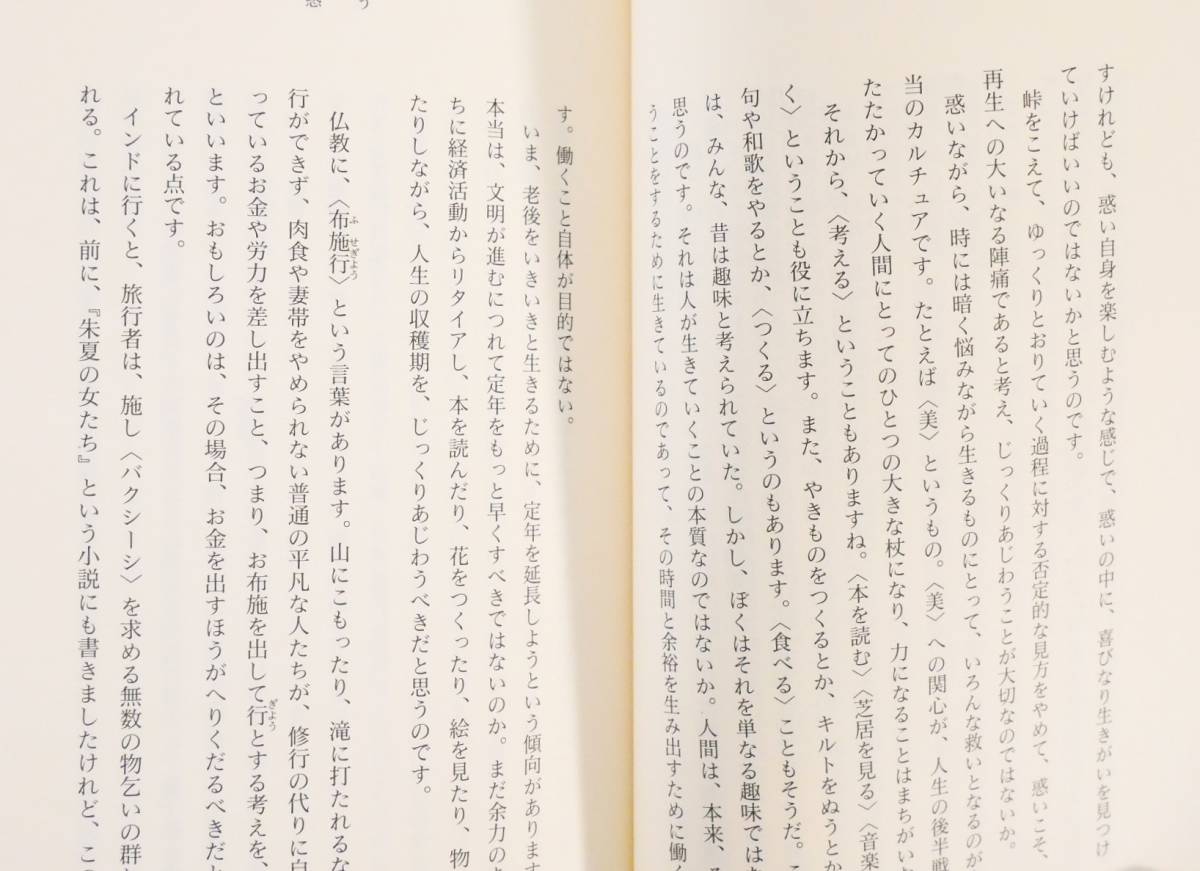 すけれども、惑い自身を楽しむような感じで、惑いの中に、喜びなり生きがいを見つけ
ていけばいいのではないかと思うのです。
峠をこえて、ゆっくりとおりていく過程に対する否定的な見方をやめて、惑いこそ、
再生への大いなる陣痛であると考え、じっくりあじわうことが大切なのではないか。
惑いながら、時には暗く悩みながら生きるものにとって、いろんな救いとなるのが
当のカルチュアです。たとえば〈美〉というもの。〈美〉への関心が、人生の後半戦
たたかっていく人間にとってのひとつの大きな杖になり、力になることはまちがい
それから、〈考える〉ということもありますね。〈本を読む〉〈芝居を見る〉〈音楽
く〉ということも役に立ちます。また、やきものをつくるとか、キルトをぬうとか
句や和歌をやるとか、〈つくる〉というのもあります。〈食べる〉こともそうだ。こ
は、みんな、昔は趣味と考えられていた。しかし、ぼくはそれを単なる趣味では
思うのです。それは人が生きていくことの本質なのではないか。人間は、本来、
うことをするために生きているのであって、その時間と余裕を生み出すために働く
す。働くこと自体が目的ではない。
いま、老後をいきいきと生きるために、定年を延長しようという傾向があります
本当は、文明が進むにつれて定年をもっと早くすべきではないのか。まだ余力の
ちに経済活動からリタイアし、本を読んだり、花をつくったり、絵を見たり、物
たりしながら、人生の収穫期を、じっくりあじわうべきだと思うのです。
仏教に、〈布施行〉という言葉があります。山にこもったり、滝に打たれるな
行ができず、肉食や妻帯をやめられない普通の平凡な人たちが、修行の代りに自
っているお金や労力を差し出すこと、つまり、お布施を出して行とする考えを、
といいます。おもしろいのは、その場合、お金を出すほうがへりくだるべきだと
れている点です。
インドに行くと、旅行者は、施し〈バクシーシ〉を求める無数の物乞いの群
れる。これは、前に、『朱夏の女たち』という小説にも書きましたけれど、こ